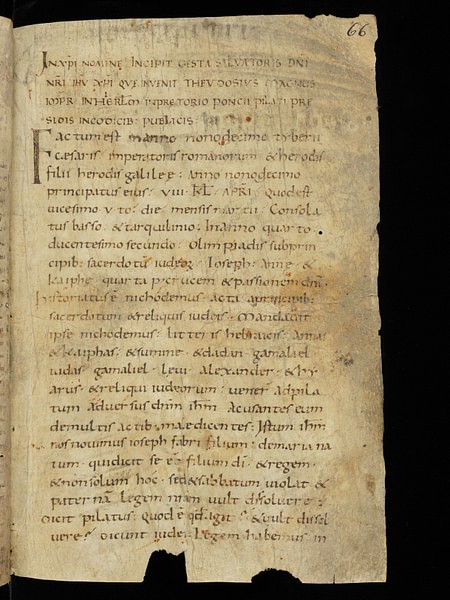 66
IN XPI NOMINE INCIPIT GESTA SALVATORIS DNI
NRI IHU XPI QUE INVENIT THEUDOSIUS MAGNUS
IMPR IN HIERLM IN PRETORIO PONCII PILATI PRE
SIDIS IN CODICIB: PUBLICIS:
Factum est in anno nonodecimo tyberii
cæsaris imperatoris romanorum & herodis
filii herodis galileæ: Anno nonodecimo
principatus eius: viii · KL · APRL · quod est
vicesimo v to: die mensis martii · Consola
tus basso & tarquilino: In anno quarto
ducentesimo secundo · Olimpiadis sub prin
cipib: sacerdotū iudeoꝝ · Joseph: Anne &
kaiphe · quarta p crucem & passionem dni ·
historiatus ē nichodemus · acta a principib:
sacerdotum & reliquis iudeis · Mandavit
ipse nichodemus: litteris hebraicis · Annas
& kaiphas · & summe · & dadan · gamaliel
iudas · gamaliel · levi · alexander · & hy
arus · & reliqui iudeorum · vener ad pila
tum adversus dnm ihm Accusantes eum
de multis actib: male dicentes: Istum ihm
nos novimus ioseph fabri filium: de maria na
tum · qui dicit se eē filium di · & regem ·
& non solum hoc · sed & sabbatum violat &
patter nā legem nram vult dissolvere:
Dicit pilatus: quod ē qd agit: & vult dissol
vere? Dicunt iudei: Legem habemus in